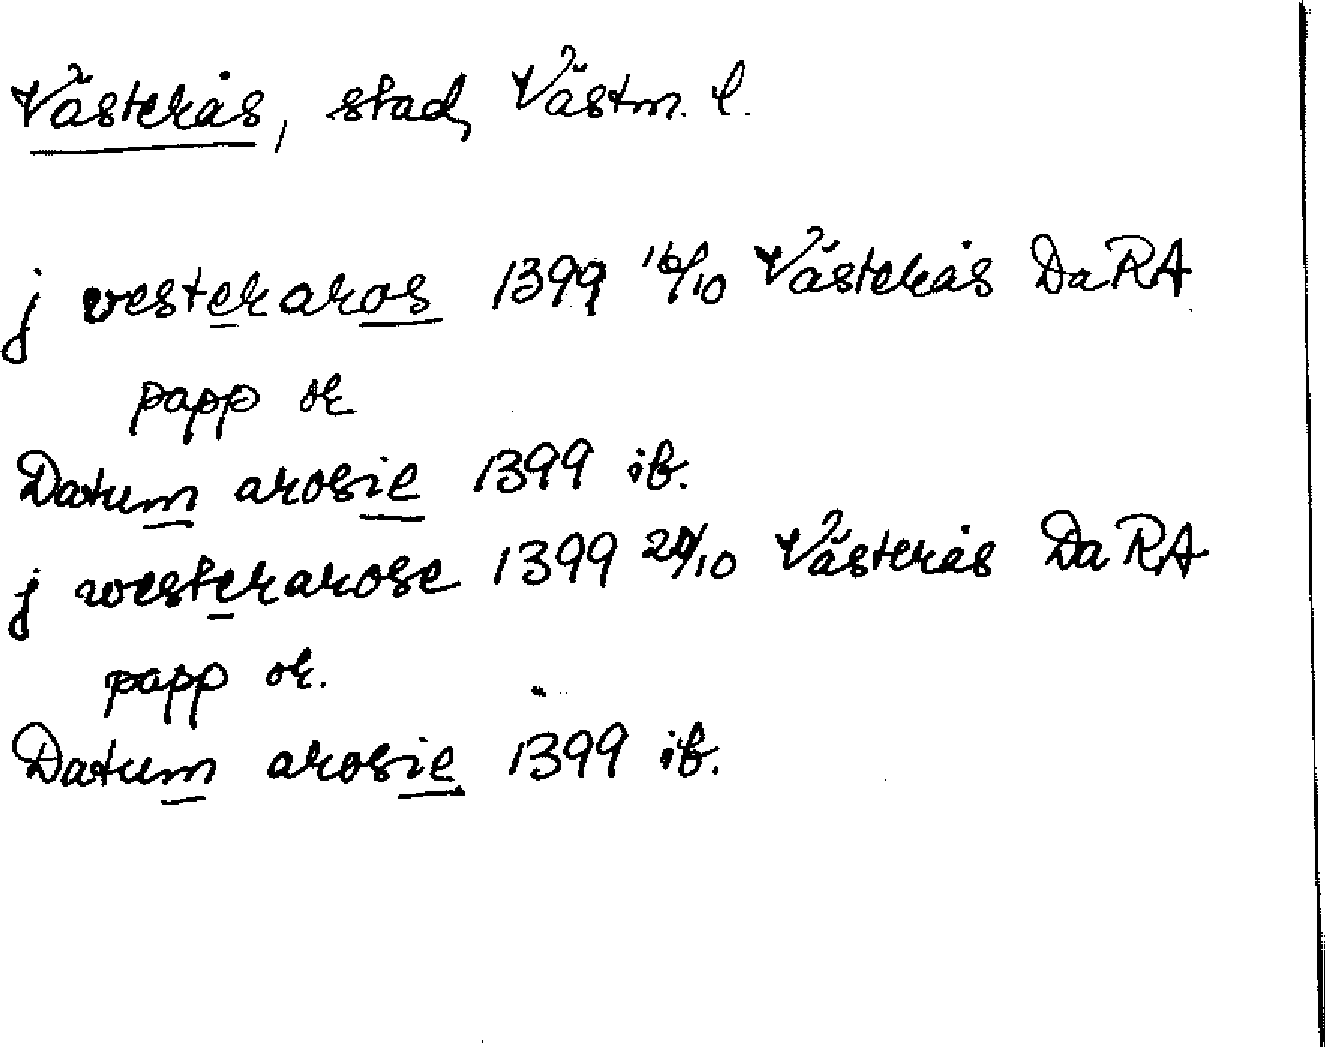 Västerås, stad, Västm. l.
j vesteraros 1399 16/10 Västerås DaRA
papp or
Datum arosie 1399 ib.
j westerarose 1399 /10 Västerås DaRA
papp or.
Datum arosie 1399 ib.